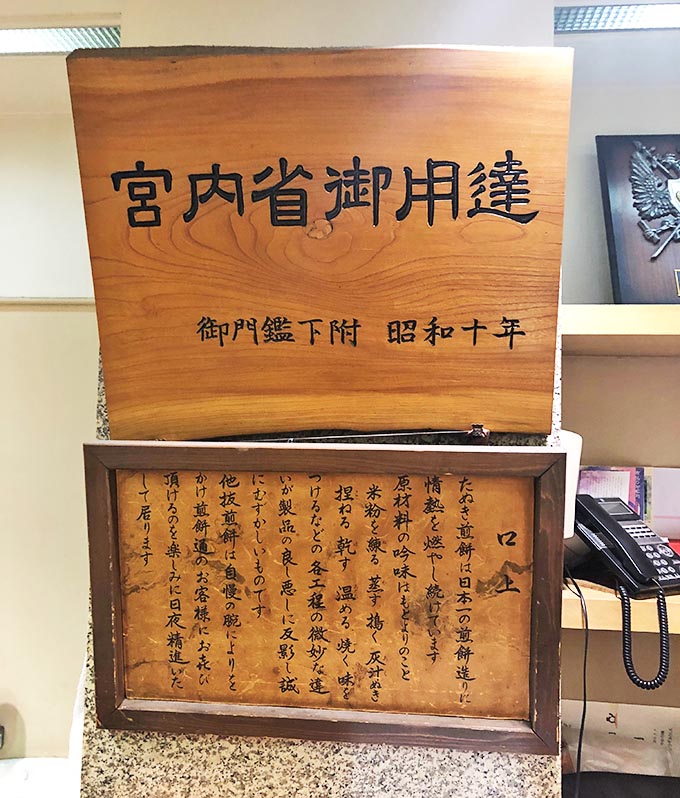 宮内省御用達
御門鑑下附 昭和十年
口上
たぬき煎餅は日本一の煎餅造りに
情熱を燃やし続けています
原材料の吟味はもとよりのこと
米粉を練る 蒸す 搗く 灰汁ぬき
捏ねる 乾す 温める 焼く 味を
つけるなどの各工程の微妙な違
いが製品の良し悪しに反影し誠
にむずかしいものです
他抜煎餅は自慢の腕によりを
かけ煎餅通のお客様にお㐂び
頂けるのを楽しみに日夜精進いた
して居ります